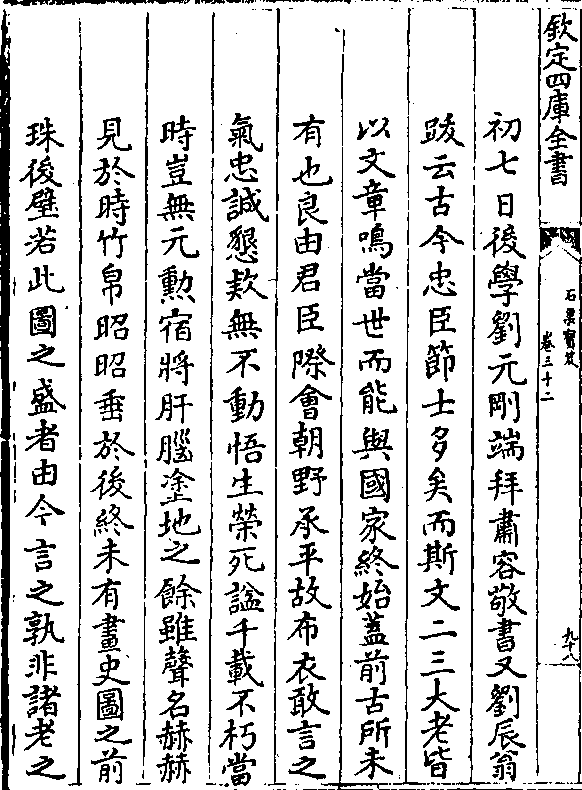 欽定四庫全書
石渠寳笈
卷三十二
九十八
初七日後學劉元剛端拜肅容敬書又劉辰翁
跋云古今忠臣節士多矣而斯文二三大老皆
以文章鳴當世而能與國家終始蓋前古所未
有也良由君臣際會朝野承平故布衣敢言之
氣忠誠懇欵無不動悟生榮死諡千載不朽當
時豈無元勲宿將肝腦塗地之餘雖聲名赫赫
見於時竹帛昭昭垂於後終未有畫史圖之前
珠後璧若此圖之盛者由今言之孰非諸老之